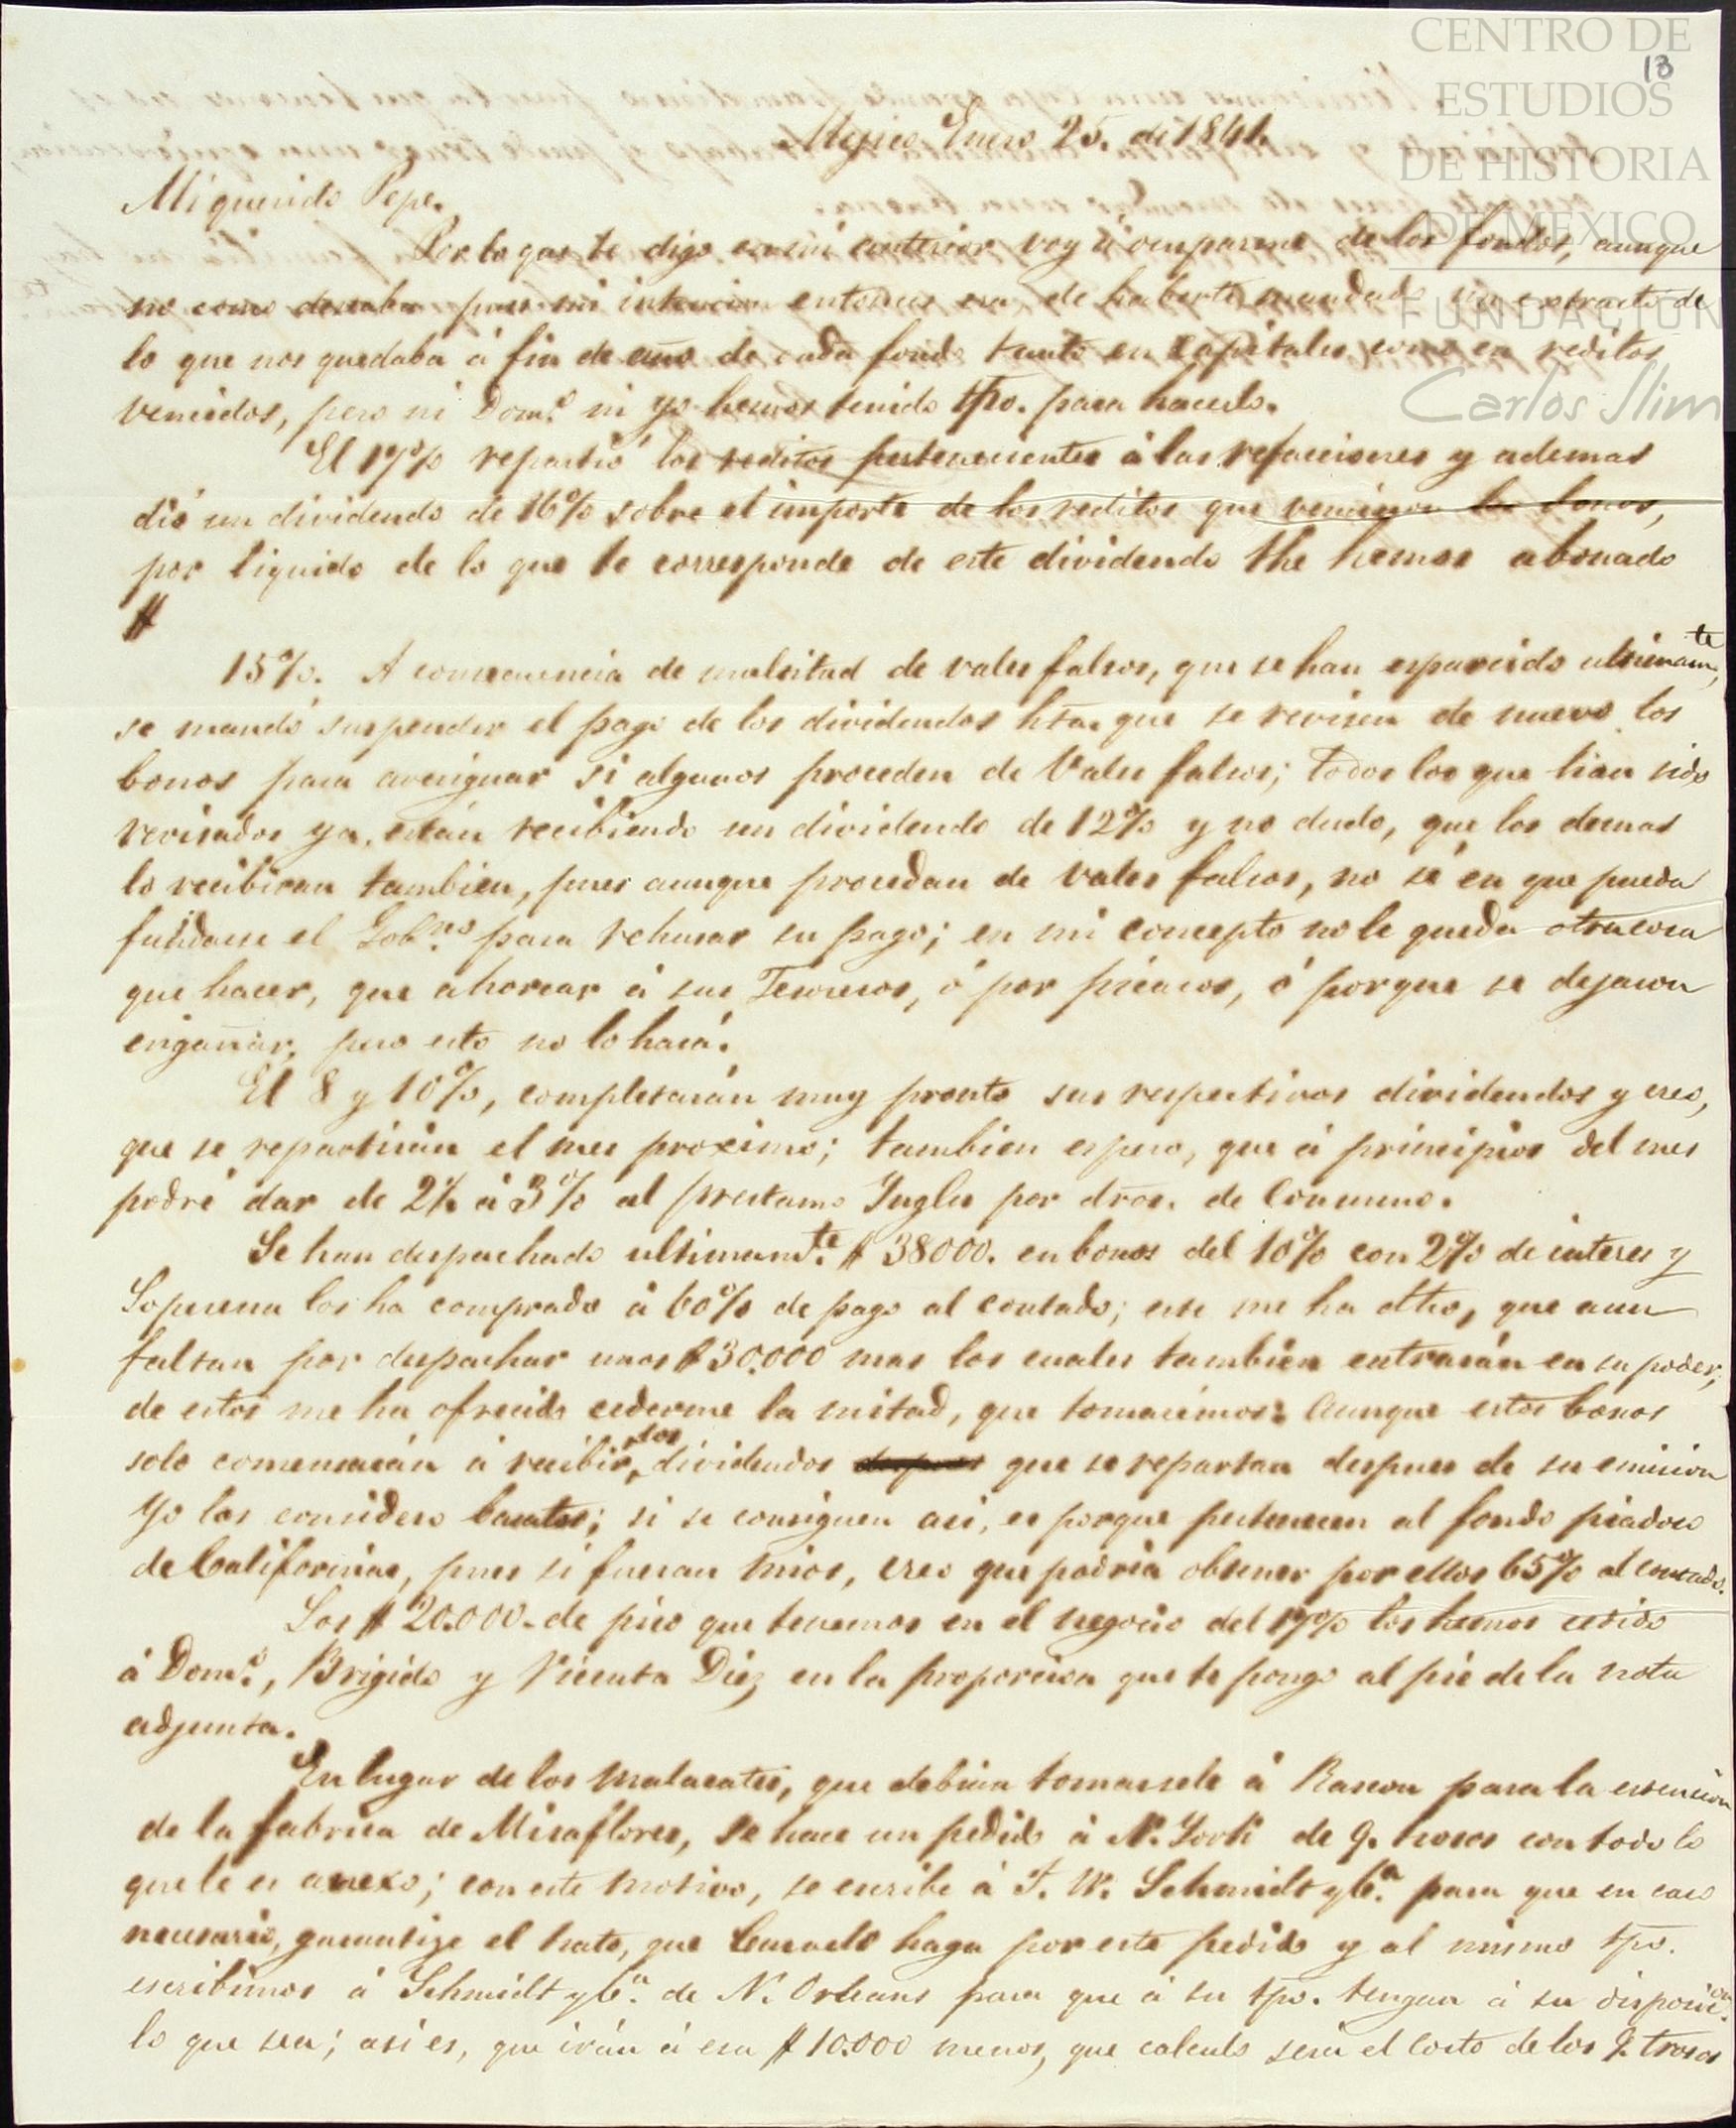 CENTRO DE
ESTUDIOS
DE HISTORIA
DE MEXICO
FUNDACION
Carlos Slim
13
Mejico Enero 25. de 1841.
Mi querido Pepe.
Por lo que te digo en mi anterior voy á ocuparme de los fondos, aunque
no como deseaba pues mi intencion entonces era, de haberte mandado un extracto de
lo que nos quedaba á fin de año de cada fondo tanto en capitales como en reditos
vencidos, pero ni Dom.º ni yo hemos tenido tpo. para hacerlo.
El 17% repartió los reditos pertenecientes á las refacciones y ademas
dió un dividendo de 16% sobre el importe de los reditos que vencieron los bonos,
por liquido de lo que te corresponde de este dividendo the hemos abonado
$
15%. A consecuencia de multitud de vales falsos, que se han esparcido ultimam.te,
se mandó suspender el pago de los dividendos hta. que se revisen de nuevo los
bonos para averiguar si algunos proceden de Vales falsos; todos los que han sido
revisados ya, están recibiendo un dividendo de 12% y no dudo, que los demas
lo recibiran tambien, pues aunque procedan de vales falsos, no sé en que pueda
fundarse el Gob.no para rehusar su pago; en mi concepto no le queda otra cosa
que hacer, que ahorcar á sus Tesoreros, ó por pícaros, ó porque se dejaron
engañar, pero esto no lo hará.
El 8 y 10%, completarán muy pronto sus respectivos dividendos y creo,
que se repartirán el mes proximo; tambien espero, que á principios del mes
podré dar de 2½ á 3% al prestamo Ingles por dros. de Consumo.
Se han despachado ultimam.te $ 38000. en bonos del 10% con 2% de interes y
Soperena los ha comprado á 60% de pago al contado; ese me ha dho, que aun
faltan por despachar unos $ 30.000 mas los cuales tambien entrarán en su poder;
de estos me ha ofrecido cederme la mitad, que tomarémos. Aunque estos bonos
solo comensarán á recibir los dividendos que se repartan despues de su emision
Yo los considero baratos; si se consiguen asi, es porque pertenecen al fondo piadoso
de Californias, pues si fueran mios, creo que podria obtener por ellos 65% al contado.
Los $ 20.000. de pico que tenemos en el negocio del 17% los hemos cedido
á Dom.º, Brigido y Vicenta Diez en la proporcion que te pongo al pie de la nota
adjunta.
En lugar de los malacates, que debian tomarsele á Rascon para la estension
de la fabrica de Miraflores, se hace un pedido á N. York de 9. trosos con todo lo
que le es anexo; con este motivo, se escribe á T. W. Schmidt y C.ª para que en caso
necesario, garantize el trato, que haga por este pedido y al mismo tpo.
escribimos á Schmidt y C.ª de N. Orleans para que á su tpo. tengan á su disposic.on
lo que sea; asi es, que irán á esa $ 10.000 menos, que calculo será el costo de los 9. trosos